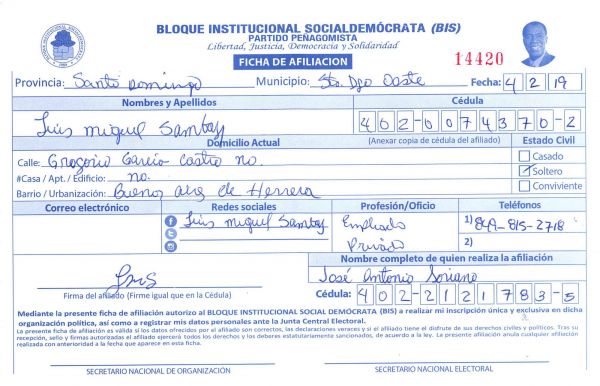 BLOQUE INSTITUCIONAL SOCIALDEMÓCRATA (BIS)
PARTIDO PEÑAGOMISTA
Libertad, Justicia, Democracia y Solidaridad
FICHA DE AFILIACION
14420
Provincia: Santo Domingo Municipio: Sto. Dgo Oeste Fecha: 4 2 19
Nombres y Apellidos Cédula
Luis Miguel Samboy 402-0074370-2
Domicilio Actual (Anexar copia de cédula del afiliado) Estado Civil
Calle: Gregorio Garcia Castro no. Casado
#Casa / Apt. / Edificio: no. Soltero
Barrio / Urbanización: Buenos aires de Herrera Conviviente
Correo electrónico Redes sociales Profesión/Oficio Teléfonos
Luis Miguel Samboy Empleado 1) 849-815-2718
Privado 2)
Nombre completo de quien realiza la afiliación
Luis José Antonio Soriano
Firma del afiliado (Firme igual que en la Cédula) Cédula: 402-2121783-5
Mediante la presente ficha de afiliación autorizo al BLOQUE INSTITUCIONAL SOCIAL DEMÓCRATA (BIS) a realizar mi inscripción única y exclusiva en dicha
organización política, así como a registrar mis datos personales ante la Junta Central Electoral.
La presente ficha de afiliación es válida si los datos ofrecidos por el afiliado son correctos, las declaraciones veraces y si el afiliado tiene el disfrute de sus derechos civiles y políticos. Tras su
recepción, sello y firmas autorizadas el afiliado ejercerá todos los derechos y los deberes estatutariamente sancionados, de acuerdo a la ley. La presente afiliación anula cualquier afiliación
realizada con anterioridad a la fecha que aparece en esta ficha.
SECRETARIO NACIONAL DE ORGANIZACIÓN SECRETARIO NACIONAL ELECTORAL